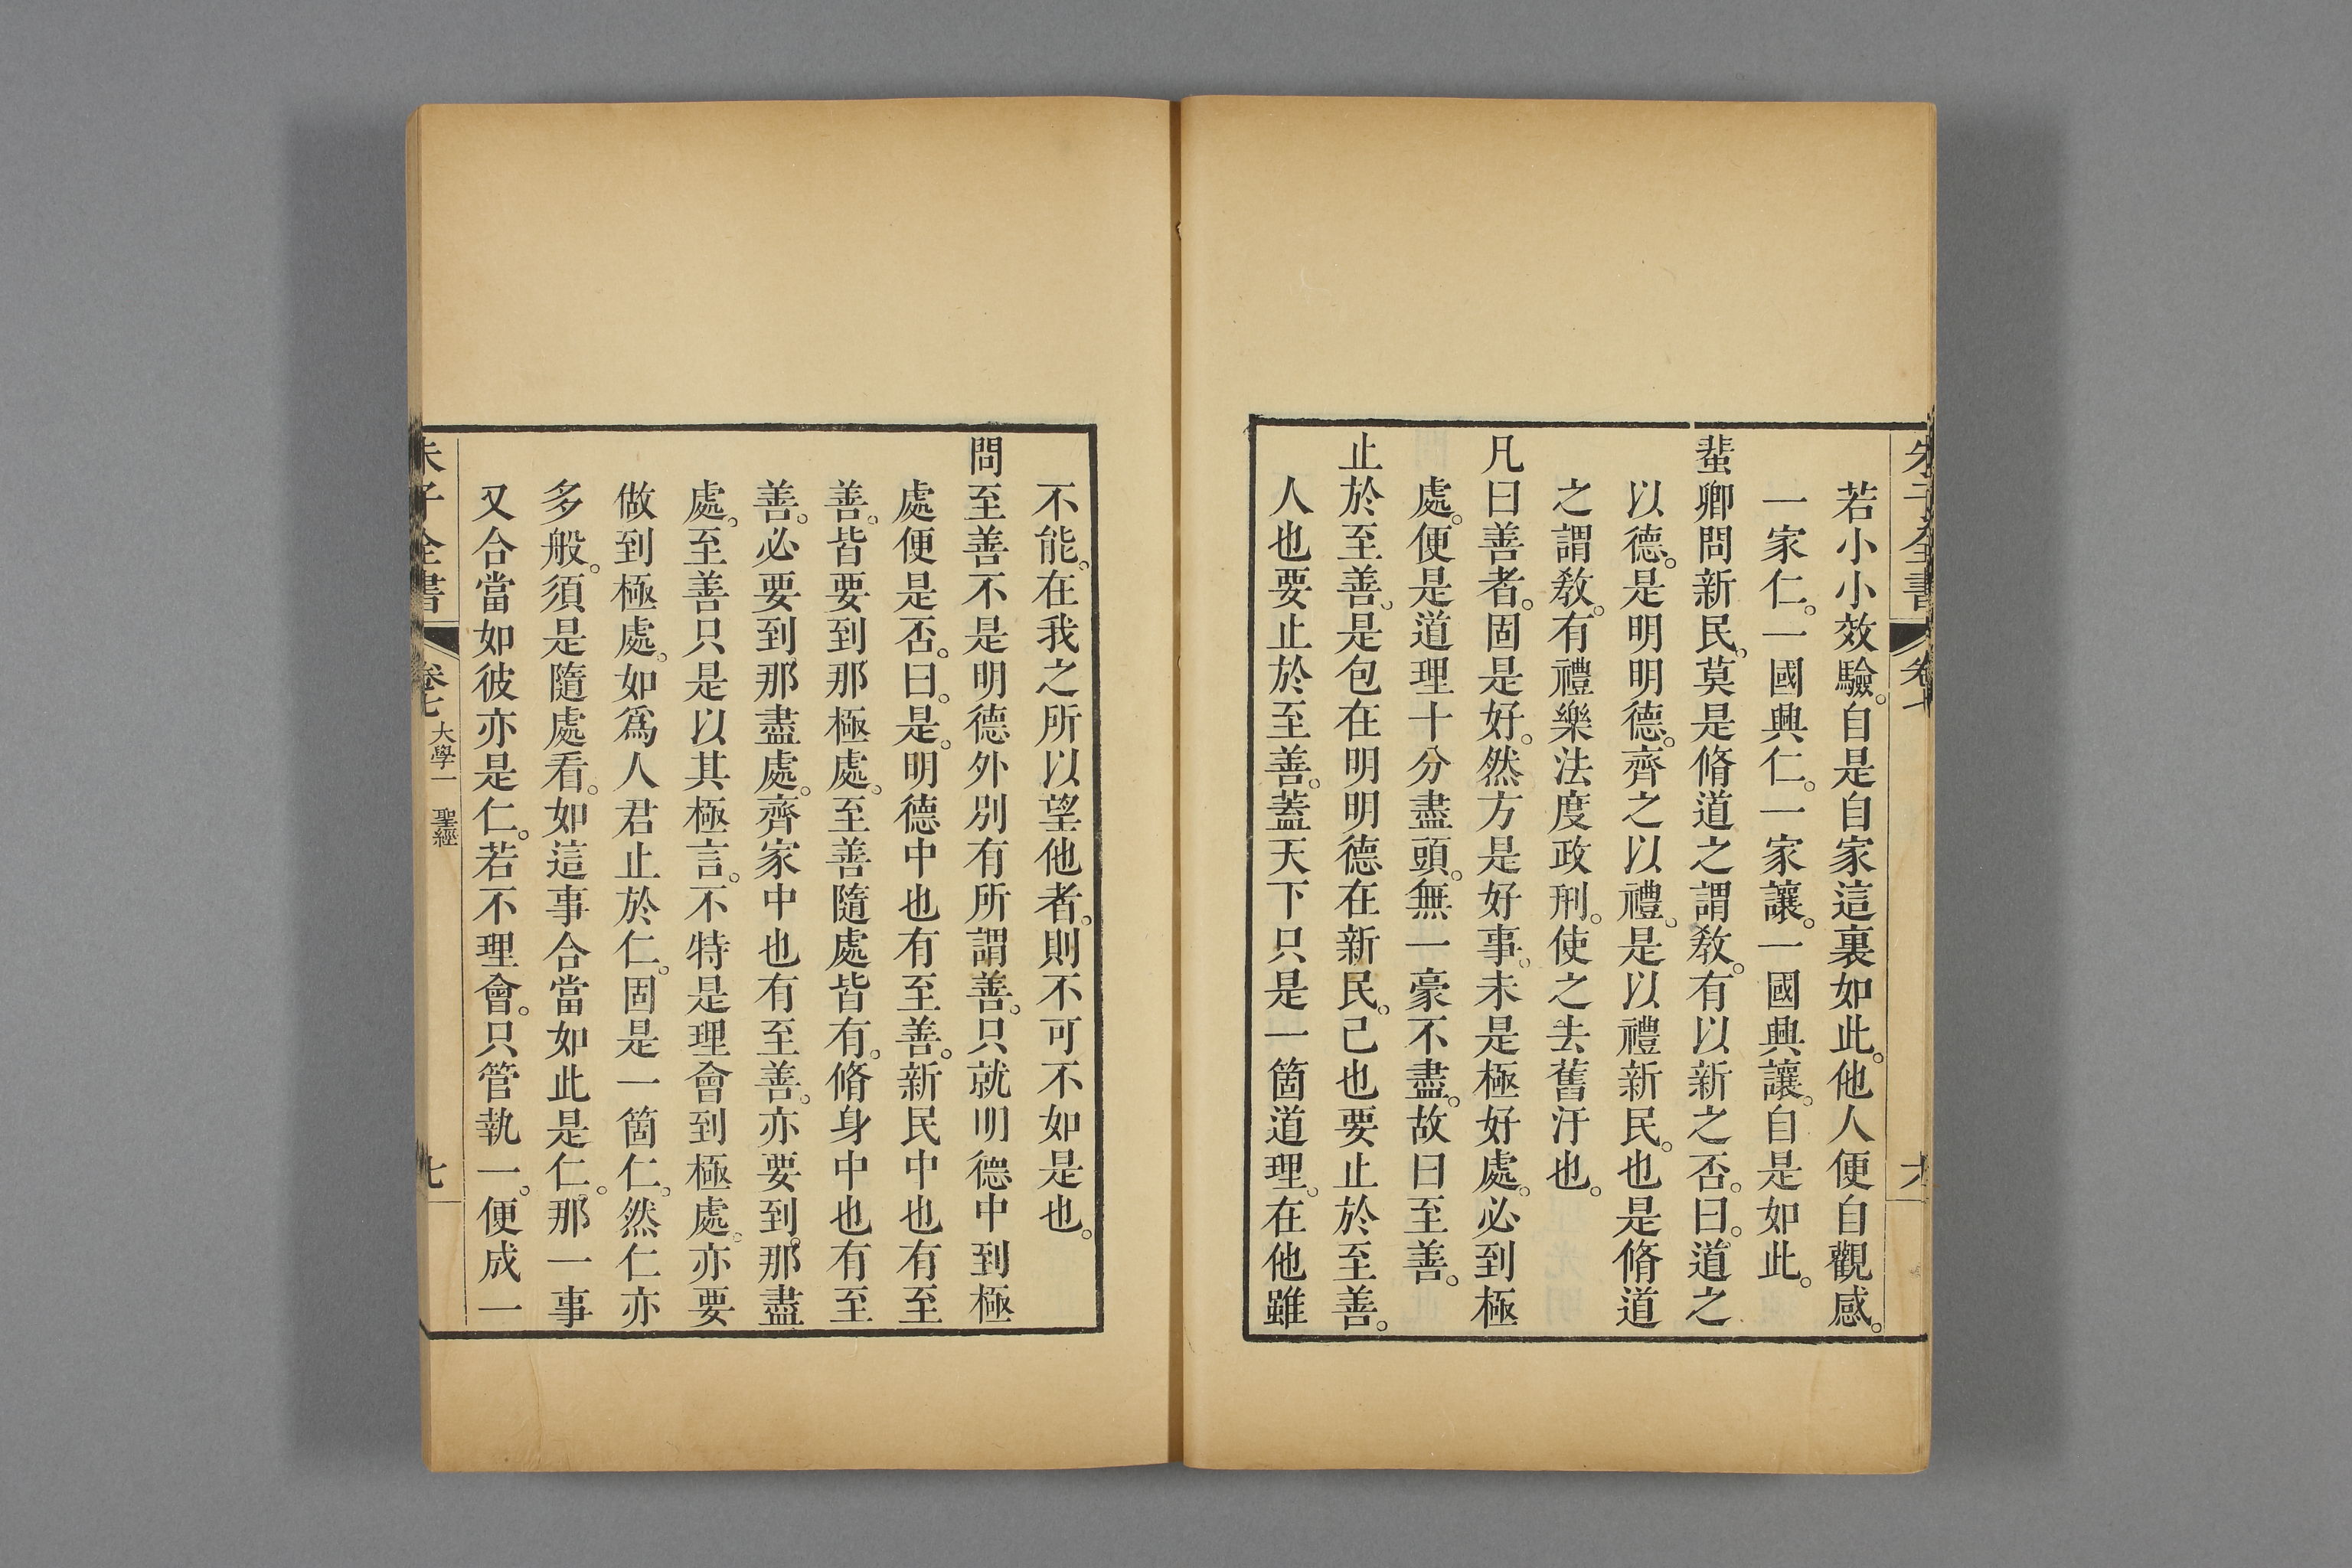 朱子全書 卷七 六
若小小效驗。自是自家這裏如此。他人便自觀感。
一家仁。一國興仁。一家讓。一國興讓。自是如此。
蜚卿問新民。莫是脩道之謂敎。有以新之否。曰。道之
以德。是明明德。齊之以禮。是以禮新民。也是脩道
之謂敎。有禮樂法度政刑。使之去舊汙也。
凡曰善者。固是好。然方是好事。未是極好處。必到極
處。便是道理十分盡頭。無一豪不盡。故曰至善。
止於至善。是包在明明德在新民。己也要止於至善。
人也要止於至善。蓋天下只是一箇道理。在他雖
不能。在我之所以望他者。則不可不如是也。
問至善不是明德外別有所謂善。只就明德中到極
處便是否。曰。是。明德中也有至善。新民中也有至
善。皆要到那極處。至善隨處皆有。脩身中也有至
善。必要到那盡處。齊家中也有至善。亦要到那盡
處。至善只是以其極言。不特是理會到極處。亦要
做到極處。如爲人君止於仁。固是一箇仁。然仁亦
多般。須是隨處看。如這事合當如此是仁。那一事
又合當如彼亦是仁。若不理會。只管執一。便成一
朱子全書 卷七 大學一 聖經 七